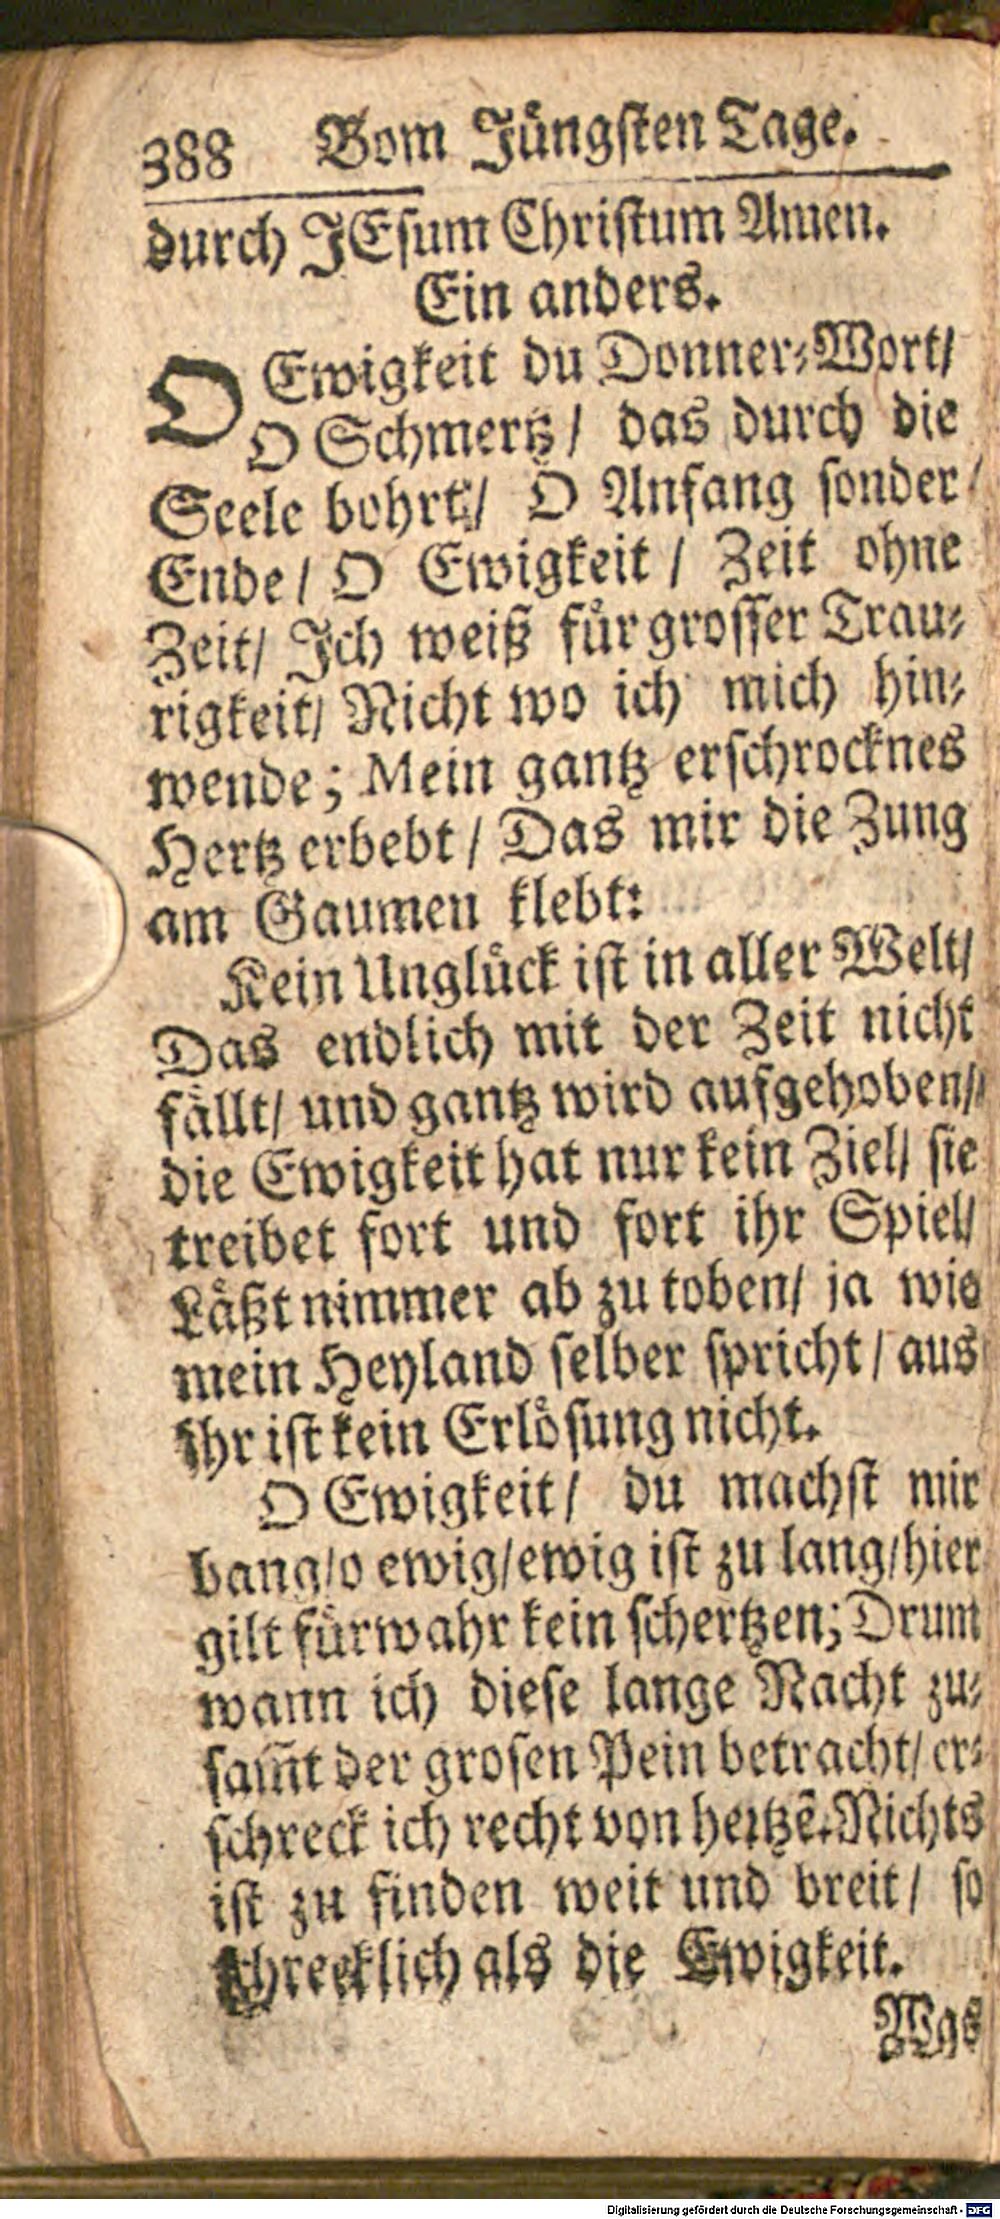 388 Vom Jüngsten Tage.
durch JEsum Christum Amen.
Ein anders.
O Ewigkeit du Donner-Wort/
O Schmertz/ das durch die
Seele bohrt/ O Anfang sonder
Ende/ O Ewigkeit/ Zeit ohne
Zeit/ Ich weiß für grosser Trau-
rigkeit/ Nicht wo ich mich hin-
wende; Mein gantz erschrocknes
Hertz erbebt/ Das mir die Zung
am Gaumen klebt:
Kein Unglück ist in aller Welt/
Das endlich mit der Zeit nicht
fällt/ und gantz wird aufgehoben/
die Ewigkeit hat nur kein Ziel/ sie
treibet fort und fort ihr Spiel/
Läßt nimmer ab zu toben/ ja wie
mein Heyland selber spricht/ aus
ihr ist kein Erlösung nicht.
O Ewigkeit/ du machst mir
bang/o ewig/ewig ist zu lang/hier
gilt fürwahr kein schertzen; Drum
wann ich diese lange Nacht zu-
sam̃t der grosen Pein betracht/ er-
schreck ich recht von hertzẽ. Nichts
ist zu finden weit und breit/ so
schrecklich als die Ewigkeit.
Was
Digitalisierung gefördert durch die Deutsche Forschungsgemeinschaft - DFG